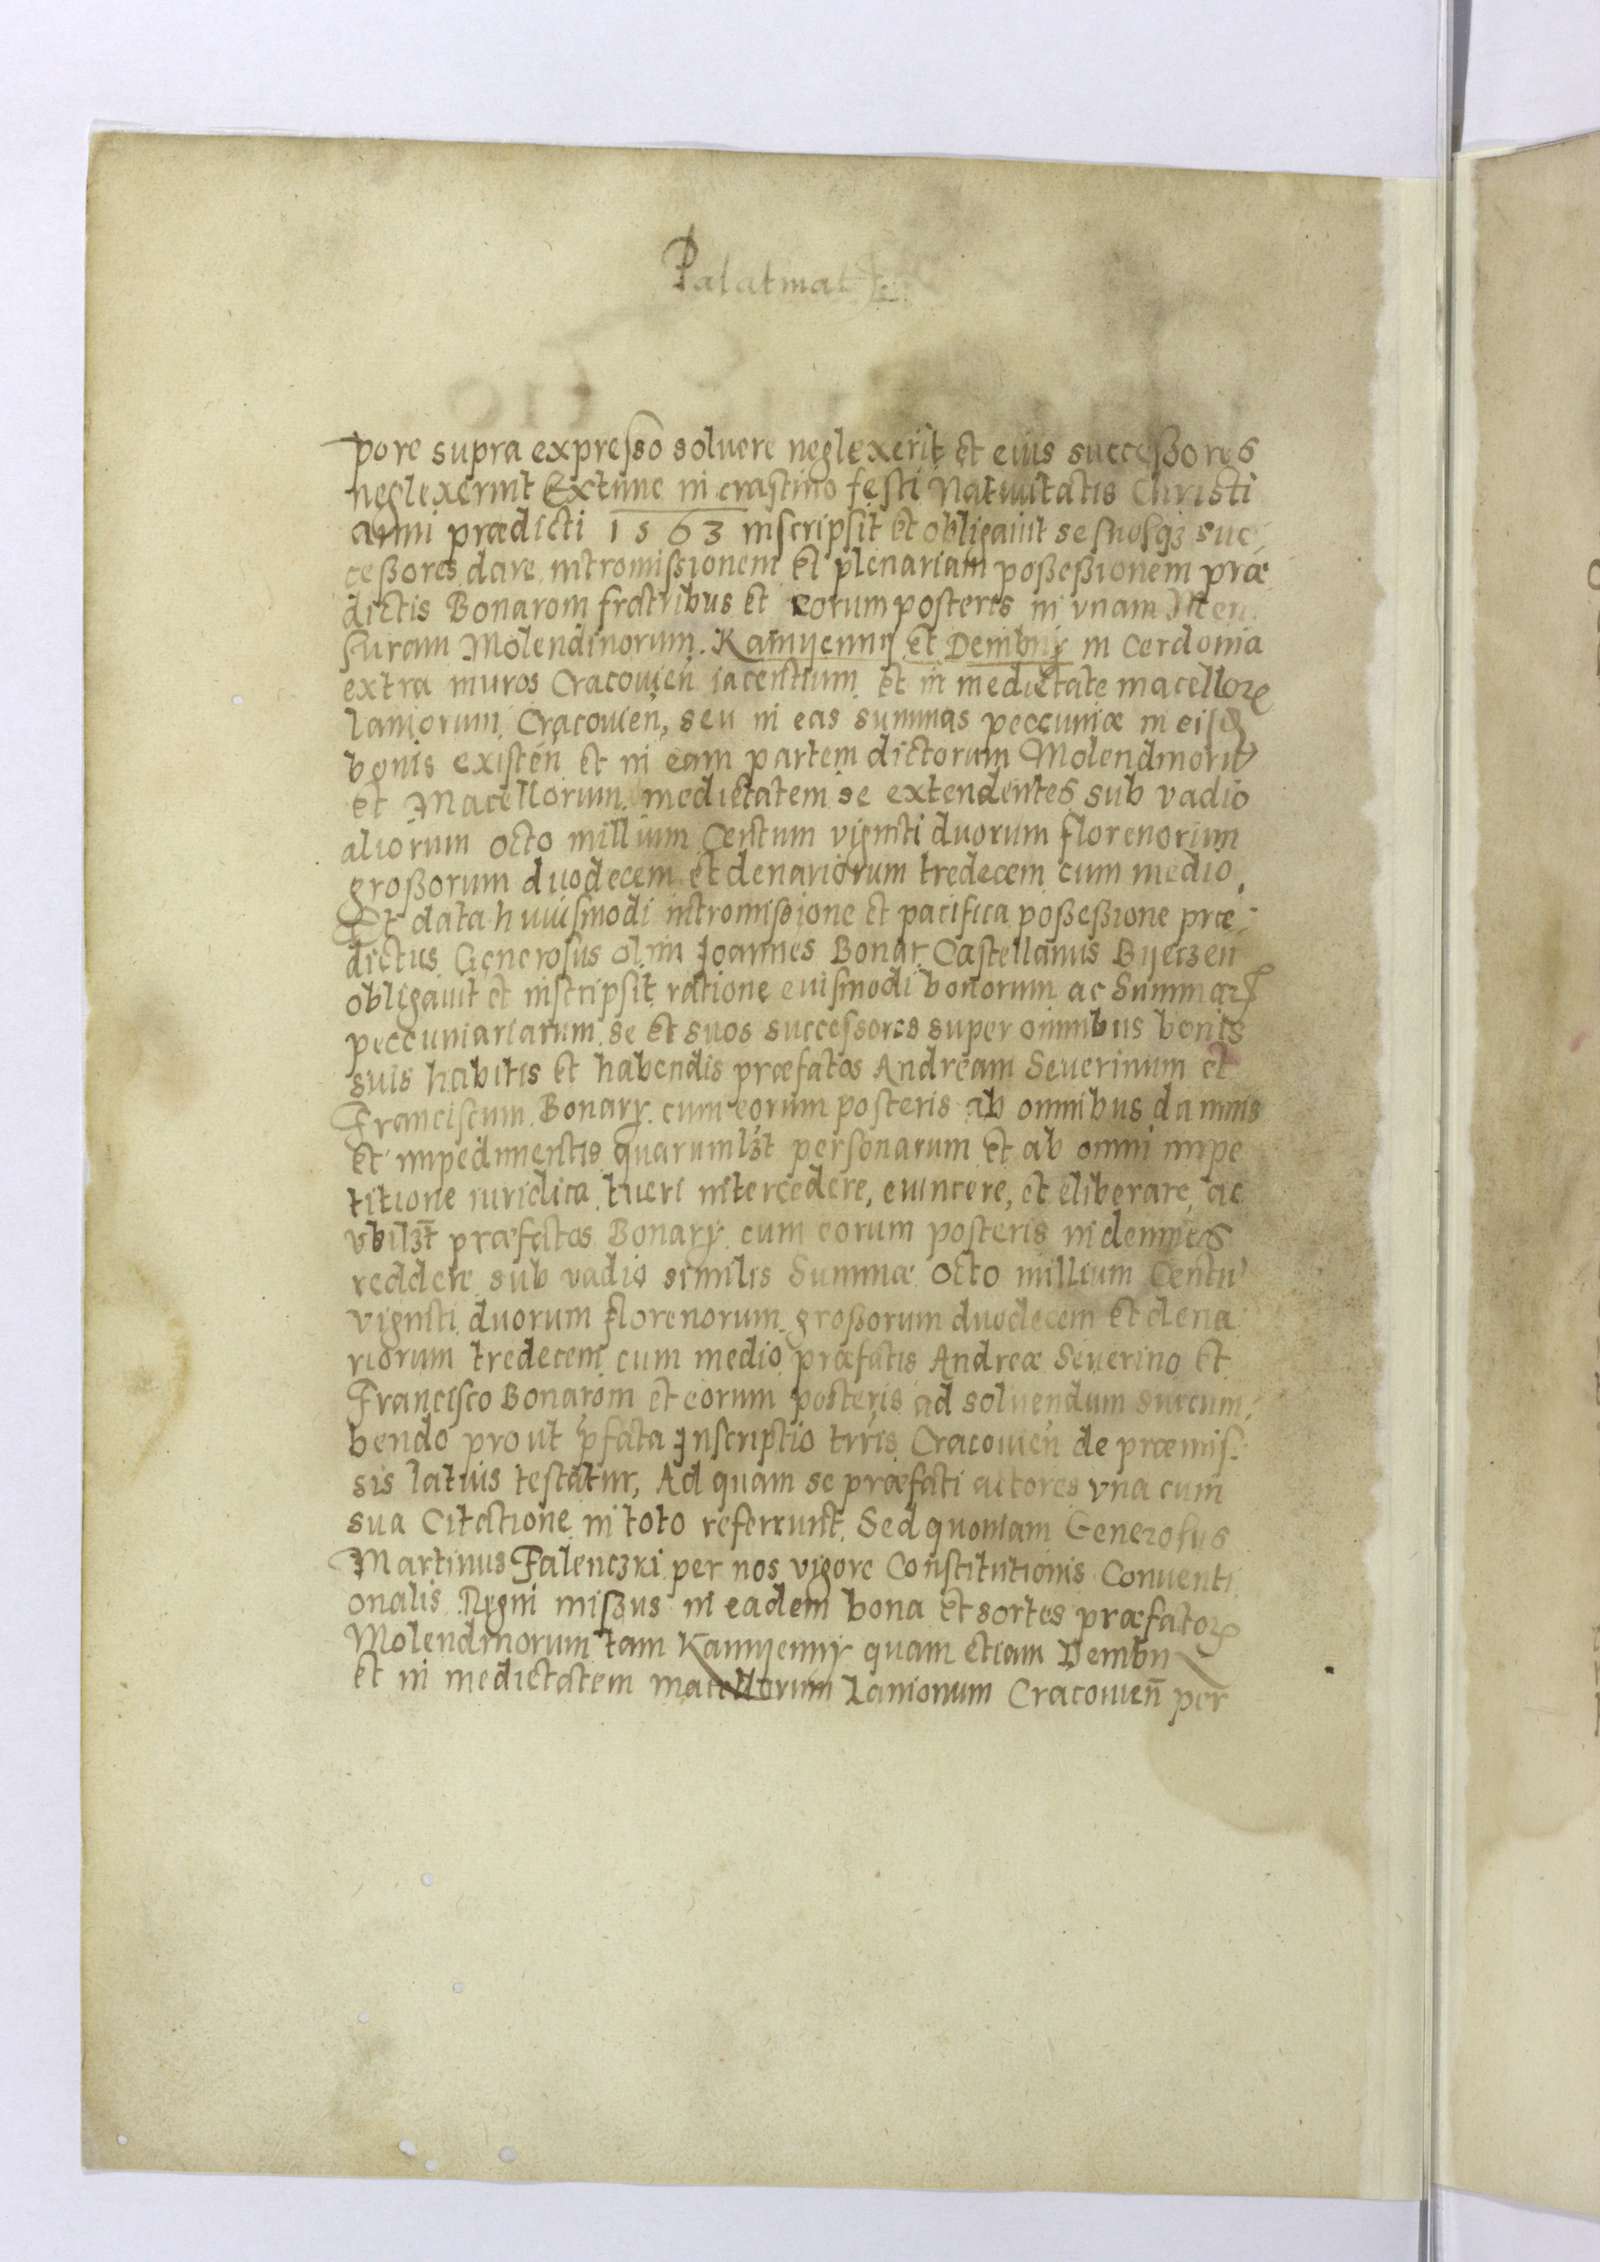 Palatinat
pore supra expresso soluere neglexerit et eius successores
neglexerint Extunc in crastino festi Natiuitatis Christi
anni prædicti 1563 inscripsit et obligauit se suosqȝ suc
cessores dare intromissionem et plenariam possessionem præ
dictis Bonarom fratribus et eorum posteris in vnam Men
suram Molendinorum Kamyenny et Dembny in Cerdonia
extra muros Cracouien̄ iacentium et in medietate macelloꝝ
laniorum Cracouien̄, seu in eas summas peccuniæ in eisd
bonis existen̄ et in eam partem dictorum Molendinorū
et Macellorum medietatem se extendentes sub vadio
aliorum octo millium Centum viginti duorum florenorum
grossorum duodecem et denariorum tredecem cum medio,
Et data huiusmodi intromissione et pacifica possessione præ:
dictus Generosus olim Joannes Bonar Castellanus Byeczen̄
obligauit et inscripsit ratione euismodi bonorum ac Summarꝝ
peccuniariarum se et suos successores super omnibus bonis
suis habitis et habendis præfatos Andream Seuerinum et
Franciscum Bonary cum eorum posteris ab omnibus damnis
et impedimentis quarumlȝt personarum et ab omni impe
titione iuridica tueri intercedere, euincere, et eliberare, ac
vbilȝt præfatos Bonary cum eorum posteris indemnes
reddere sub vadio similis Summæ octo millium Centū
viginti duorum florenorum grossorum duodecem et dena
riorum tredecem cum medio præfatis Andreæ Seuerino et
Francisco Bonarom et eorum posteris ad soluendum succum:
bendo prout p̄fata Inscriptio trr̄is Cracouien̄ de præmis:
sis latius testatur, Ad quam se præfati actores vna cum
sua Citatione in toto referrunt. Sed quoniam Generosus
Martinus Falenczki per nos vigore Constitutionis Conuenti
onalis Regni missus in eadem bona et sortes præfatoꝝ
Molendinorum tam Kamyenny quam etiam Dembny
et in medietatem macellorum Lanionum Cracouien̄ per